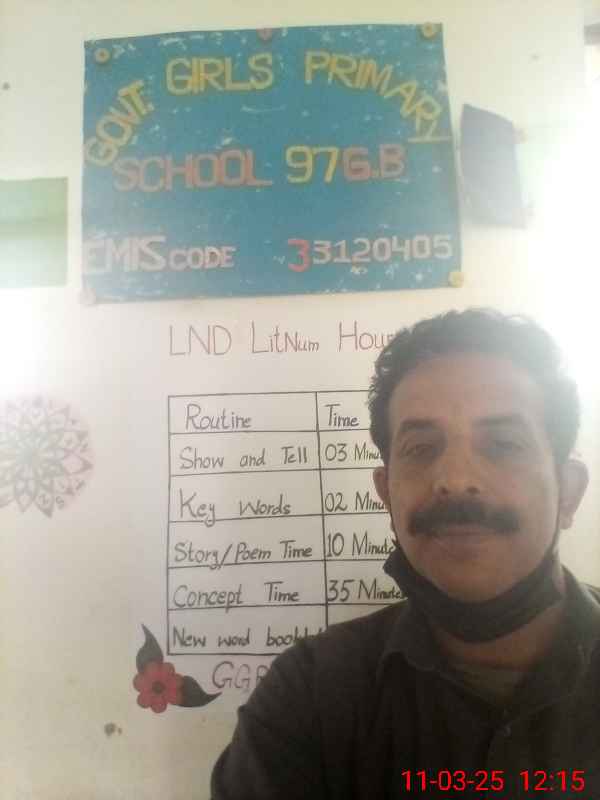 GOVT. GIRLS PRIMARY
SCHOOL 97G.B
EMIS CODE 33120405
LND LitNum Hour
Routine Time
Show and Tell 03
Key Words 02
Story/Poem Time 10 Minute
Concept Time 35 Minute
New word
11-03-25 12:15